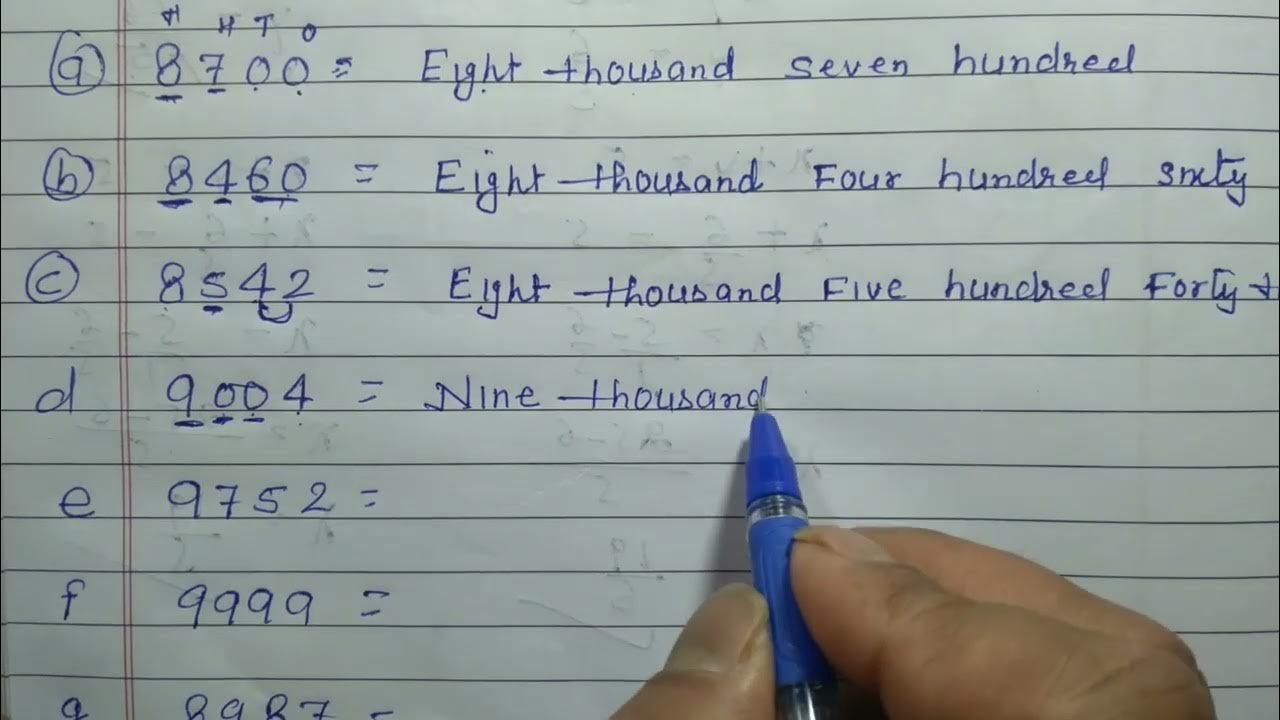 H T O
(a) 8700 = Eight thousand seven hundred
(b) 8460 = Eight thousand Four hundred sixty
(c) 8542 = Eight thousand Five hundred Forty
d 9004 = Nine thousand
e 9752 =
f 9999 =
8987 =